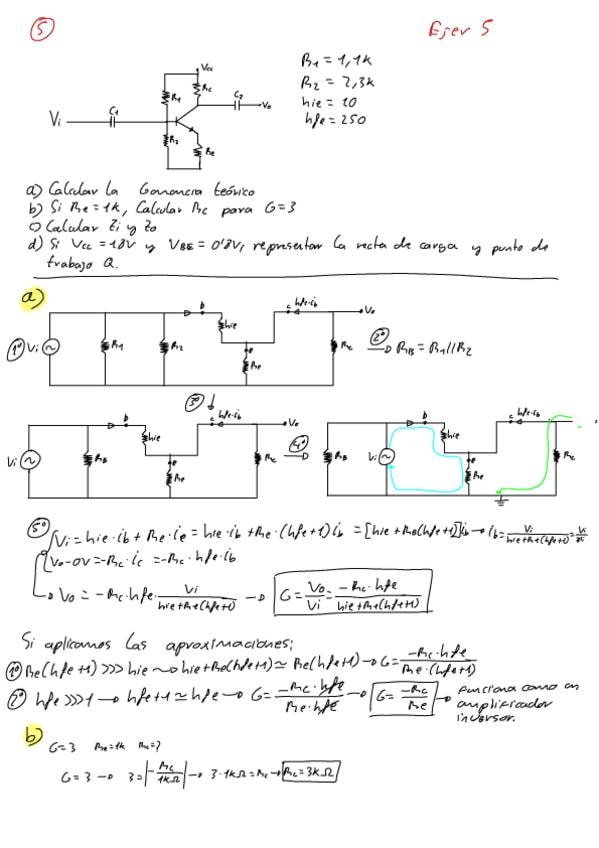 5
Ejer 5
R1 = 1,1k
R2 = 2,3k
hie = 10
hfe = 250
Vcc
R1
Rc
C2
Vo
Vi
C1
R2
Re
a) Calcular la Ganancia teórico
b) Si Re = 1k, Calcular Rc para G=3
c) Calcular Zi y Zo
d) Si Vcc = 18V y VBE = 0'8V, representar la recta de carga y punto de
trabajo Q.
a)
1º Vi
R1
R2
b
hie
e
Re
c hfe·ib
Vo
Rc
2º
RB = R1//R2
3º
Vi
RB
b
hie
e
Re
c hfe·ib
Vo
Rc
4º
RB
Vi
b
hie
e
Re
c hfe·ib
Rc
5º Vi = hie·ib + Re·ie = hie·ib + Re·(hfe+1)ib = [hie+Re(hfe+1)]ib → ib = Vi / hie+Re(hfe+1) = Vi
Vo-0V = -Rc·ic = -Rc·hfe·ib
Vo = -Rc·hfe· Vi / hie+Re(hfe+1) → G = Vo / Vi = -Rc·hfe / hie+Re(hfe+1)
Si aplicamos las aproximaciones:
1º Re(hfe+1) >>> hie → hie+Re(hfe+1) ≃ Re(hfe+1) → G = -Rc·hfe / Re·(hfe+1)
2º hfe >>> 1 → hfe+1 ≃ hfe → G = -Rc·hfe / Re·hfe → G = -Rc / Re → Funciona como un
amplificador
inversor.
b)
G=3 Re=1k Rc=?
G = 3 → 3 = |-Rc / 1kΩ| → 3·1kΩ = Rc → Rc = 3kΩ